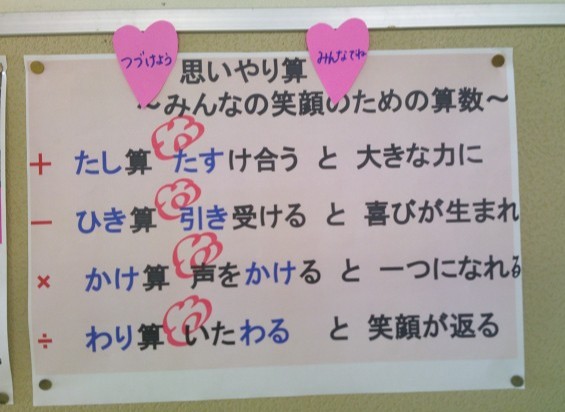 つづけよう
みんなでね
思いやり算
～みんなの笑顔のための算数～
＋ たし算 たすけ合う と 大きな力に
－ ひき算 引き受ける と 喜びが生まれ
× かけ算 声をかける と 一つになれる
÷ わり算 いたわる と 笑顔が返る